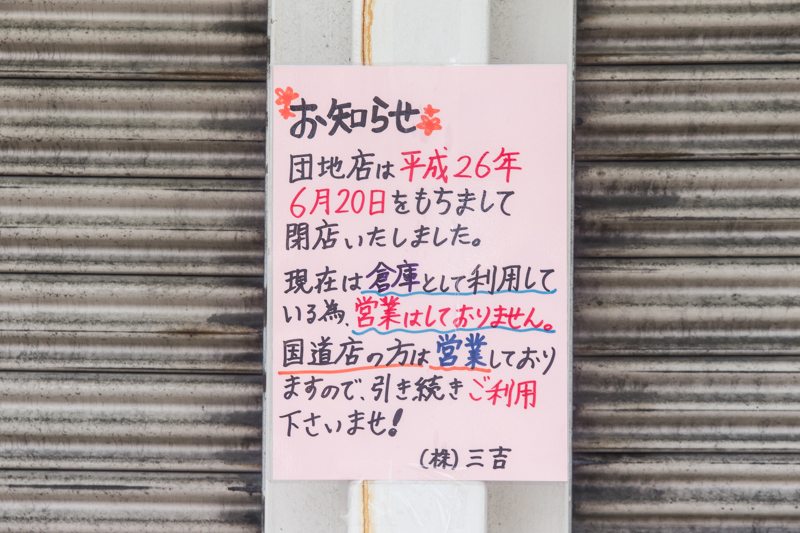 お知らせ
団地店は平成26年
6月20日をもちまして
閉店いたしました。
現在は倉庫として利用して
いる為、営業はしておりません。
国道店の方は営業しており
ますので、引き続きご利用
下さいませ!
(株)三吉